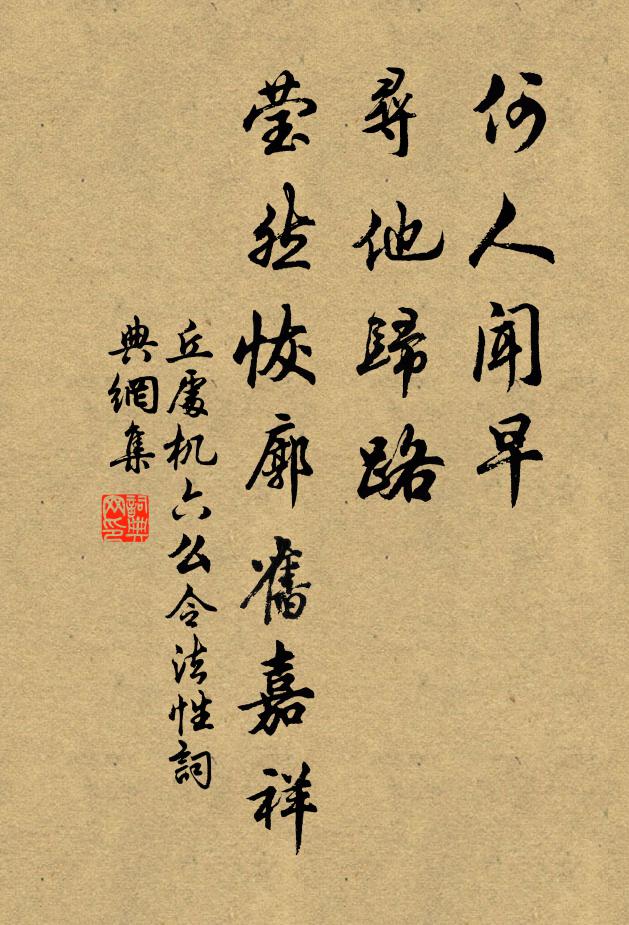 何人聞早
尋他歸路
瑩然恢廓舊嘉祥
丘處机六么令法性詞
典網集
詞典網印